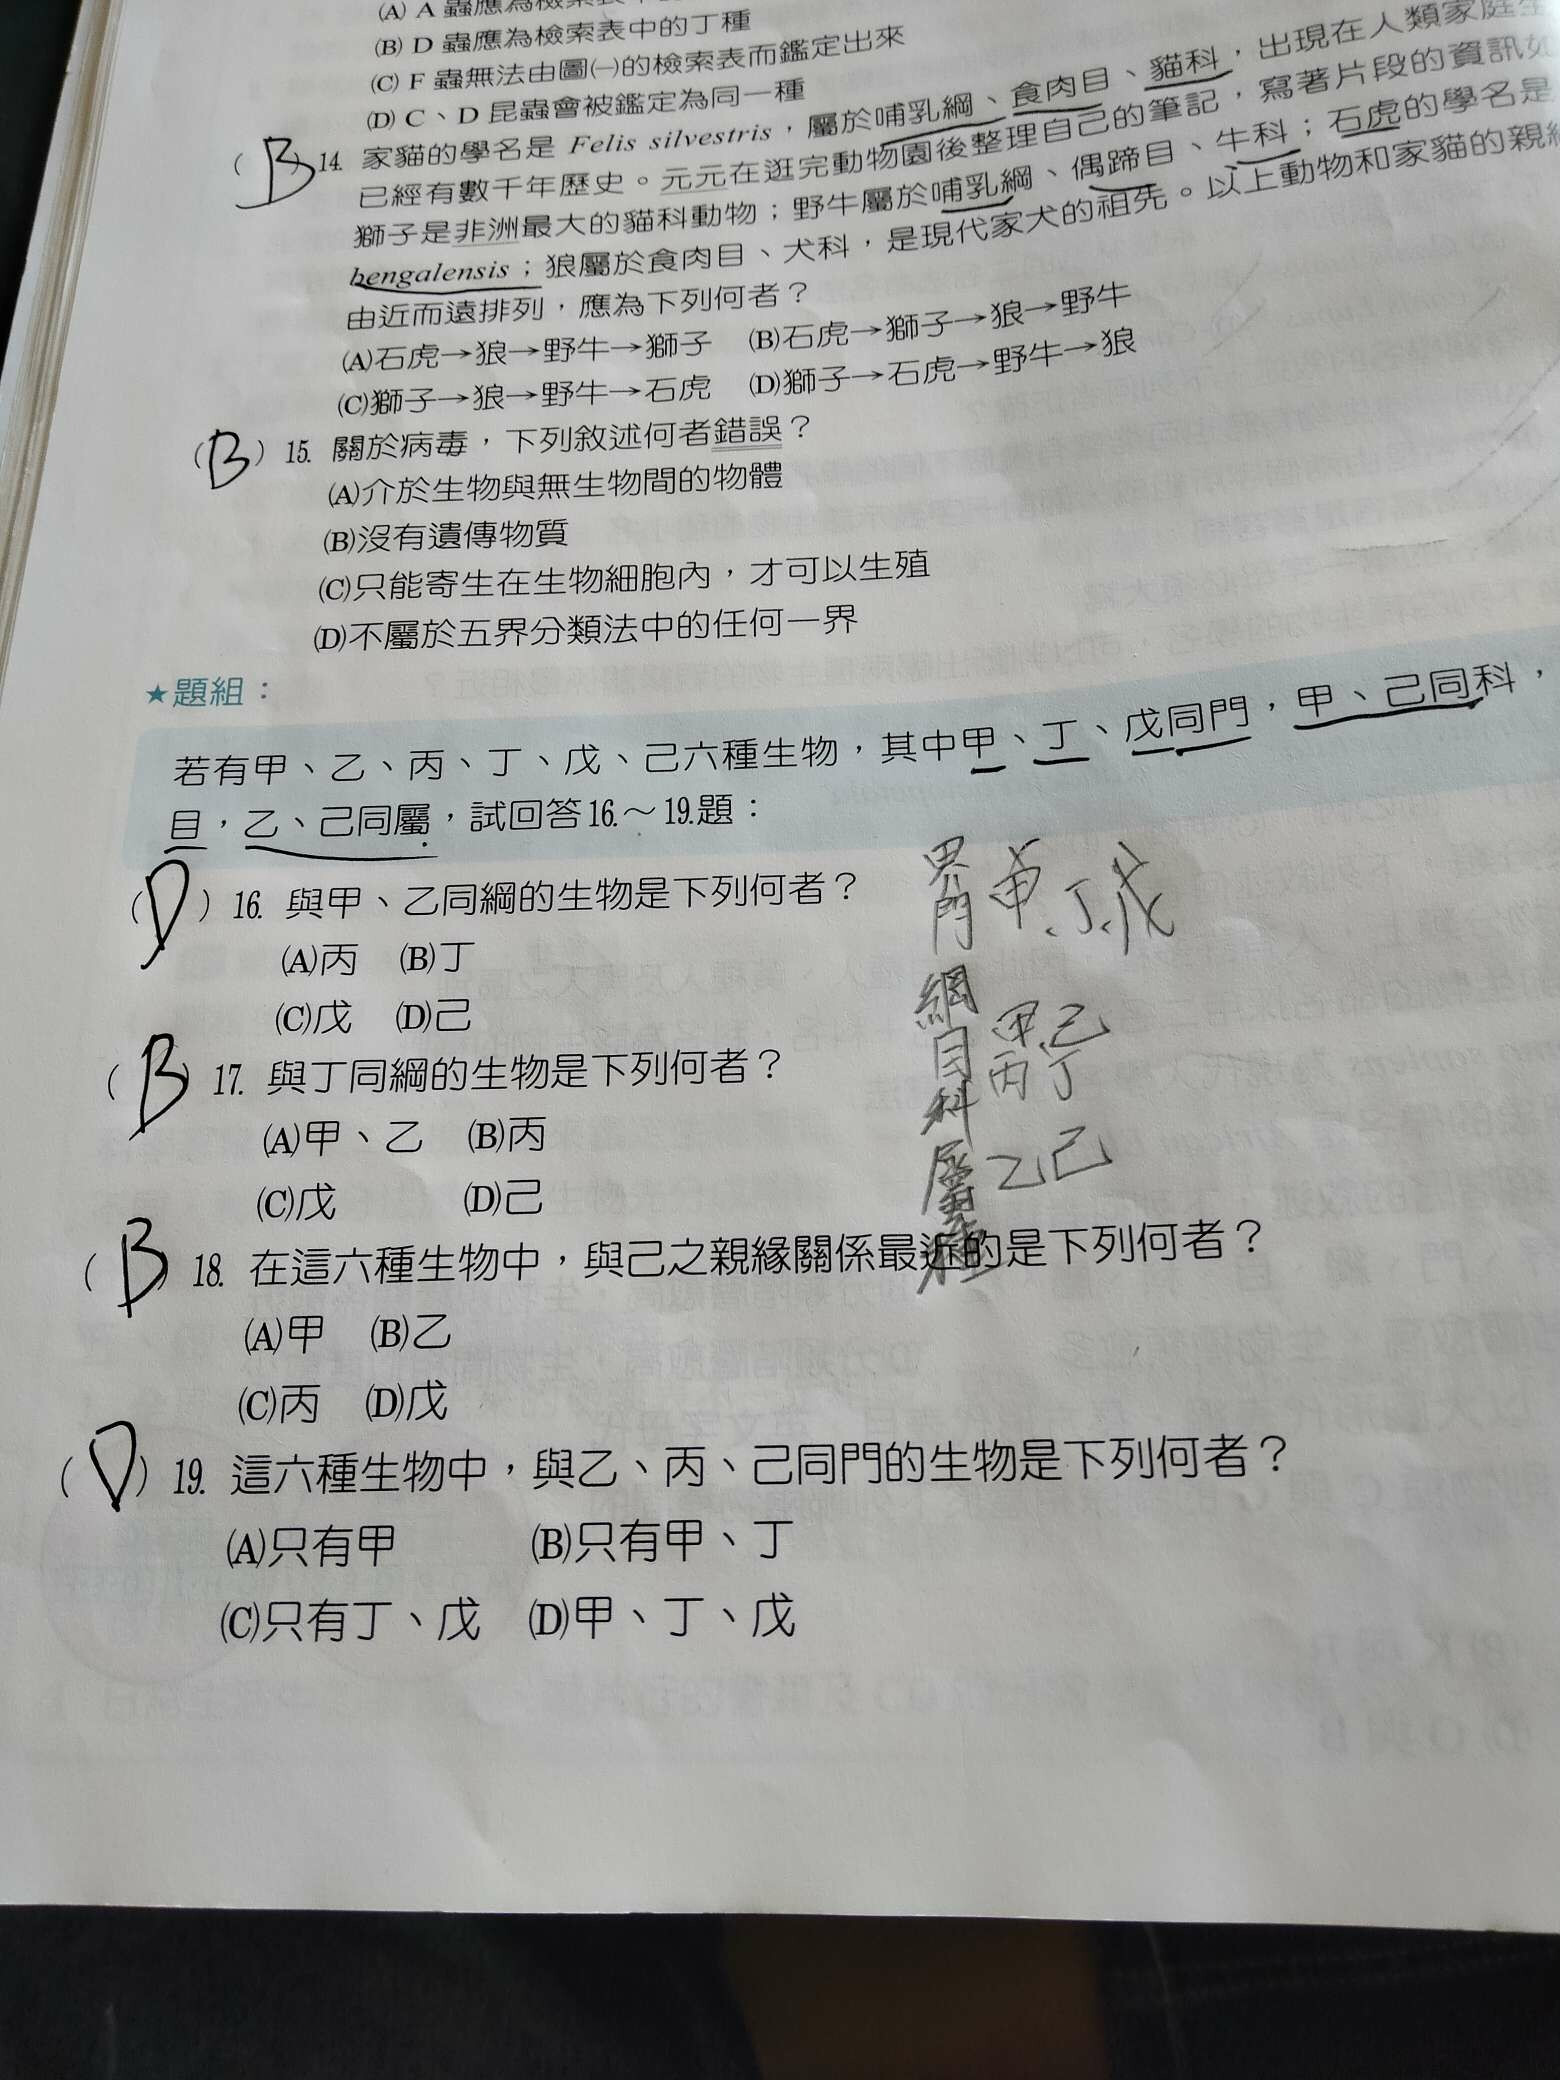 (A) A 蟲應為檢索表中
(B) D 蟲應為檢索表中的丁種
(C) F 蟲無法由圖㈠的檢索表而鑑定出來
(D) C、D 昆蟲會被鑑定為同一種
( B ) 14. 家貓的學名是 Felis silvestris，屬於哺乳綱、食肉目、貓科，出現在人類家庭
已經有數千年歷史。元元在逛完動物園後整理自己的筆記，寫著片段的資訊如
獅子是非洲最大的貓科動物；野牛屬於哺乳綱、偶蹄目、牛科；石虎的學名是
bengalensis；狼屬於食肉目、犬科，是現代家犬的祖先。以上動物和家貓的親緣
由近而遠排列，應為下列何者？
(A)石虎→狼→野牛→獅子 (B)石虎→獅子→狼→野牛
(C)獅子→狼→野牛→石虎 (D)獅子→石虎→野牛→狼
( B ) 15. 關於病毒，下列敘述何者錯誤？
(A)介於生物與無生物間的物體
(B)沒有遺傳物質
(C)只能寄生在生物細胞內，才可以生殖
(D)不屬於五界分類法中的任何一界
★題組：
若有甲、乙、丙、丁、戊、己六種生物，其中甲、丁、戊同門，甲、己同科，
目，乙、己同屬，試回答16.～19.題：
( D ) 16. 與甲、乙同綱的生物是下列何者？
(A)丙 (B)丁
(C)戊 (D)己
( B ) 17. 與丁同綱的生物是下列何者？
(A)甲、乙 (B)丙
(C)戊 (D)己
( B ) 18. 在這六種生物中，與己之親緣關係最近的是下列何者？
(A)甲 (B)乙
(C)丙 (D)戊
( D ) 19. 這六種生物中，與乙、丙、己同門的生物是下列何者？
(A)只有甲 (B)只有甲、丁
(C)只有丁、戊 (D)甲、丁、戊
界
門 甲、丁、戊
綱
目 甲己
科 丙、丁
屬 乙己
種